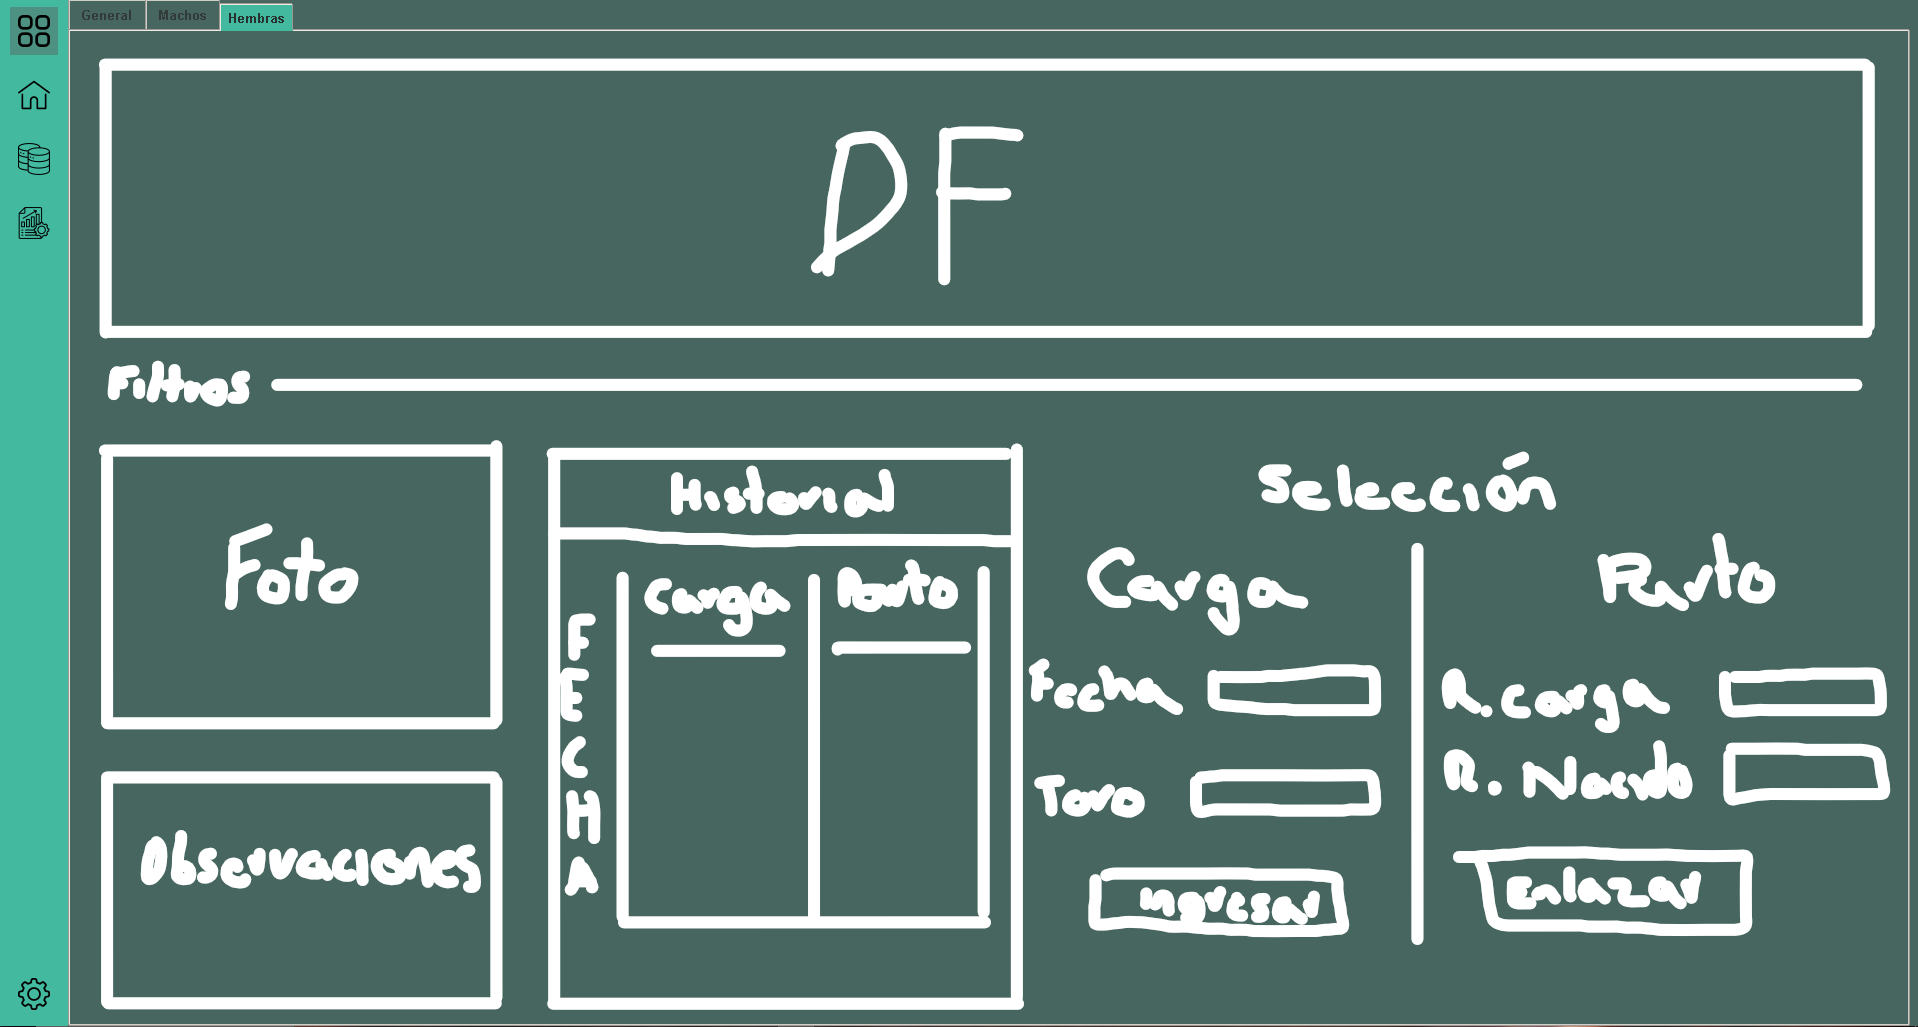 General Machos Hembras
DF
Filtros
Foto
Observaciones
Historial
FECHA
Carga Parto
Selección
Carga
Fecha
Toro
Ingresar
Parto
R. Carga
R. Nacido
Enlazar